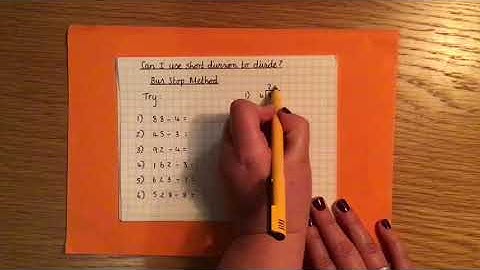 Can I use short division to divide?
Bus Stop Method
Try:
1) 88 ÷ 4 =
2) 45 ÷ 3 =
3) 92 ÷ 4 =
4) 162 ÷
5) 623 ÷
6) 528 ÷ 8 =
1) 4
2